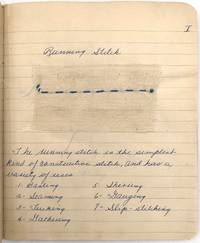 I
Running Stitch
The running stitch is the simplest
kind of constructive stitch, and has a
variety of uses
1- Basting 5 Shirring
2- Seaming 6- Gauging
3- Tucking 7- Slip-stitching
4- Gathering